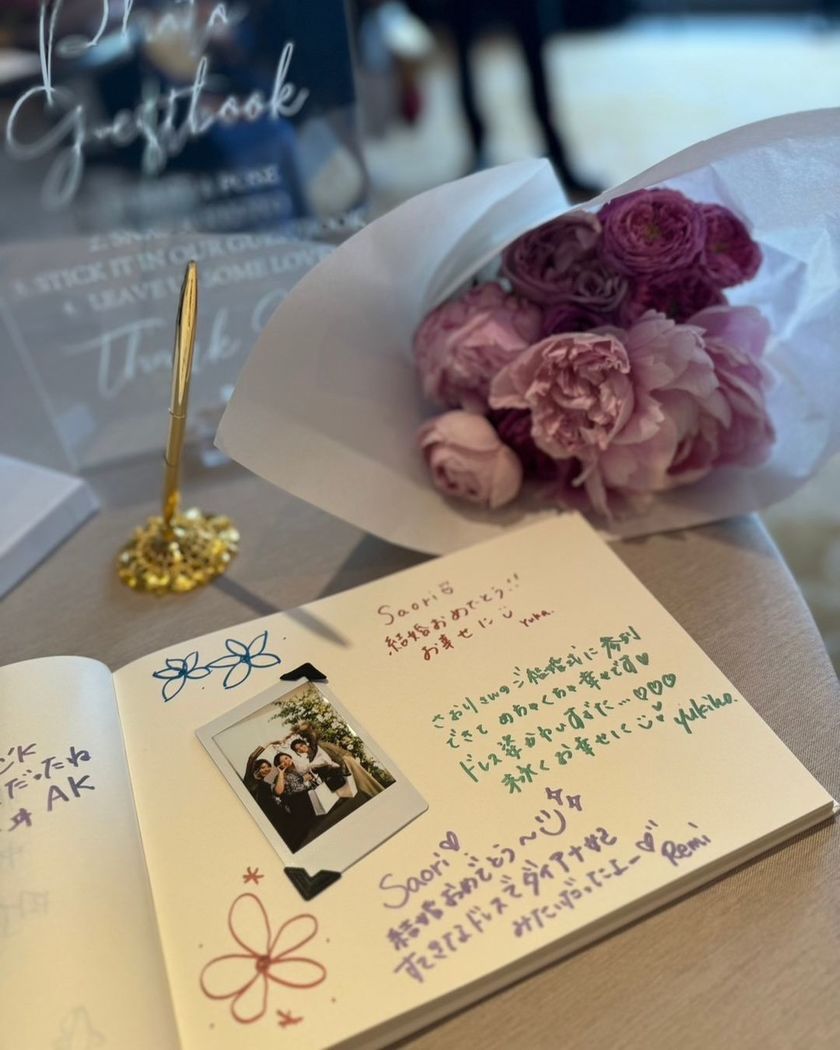 Photo
Guestbook
POSE
2. SNAP A PHOTO
3. STICK IT IN OUR GUESTBOOK
4. LEAVE SOME LOVE
Thank
だったね
AK
Saori
結婚おめでとう!!
お幸せに
yuka.
さおりさんのご結婚式に参列
できて めちゃくちゃ幸せです♡
ドレス姿かわいすぎた…♡♡♡
末永くお幸せに
yukiho.
Saori♡
結婚おめでとう〜
すてきなドレスでダイアナ妃
みたいだったよー♡
Remi